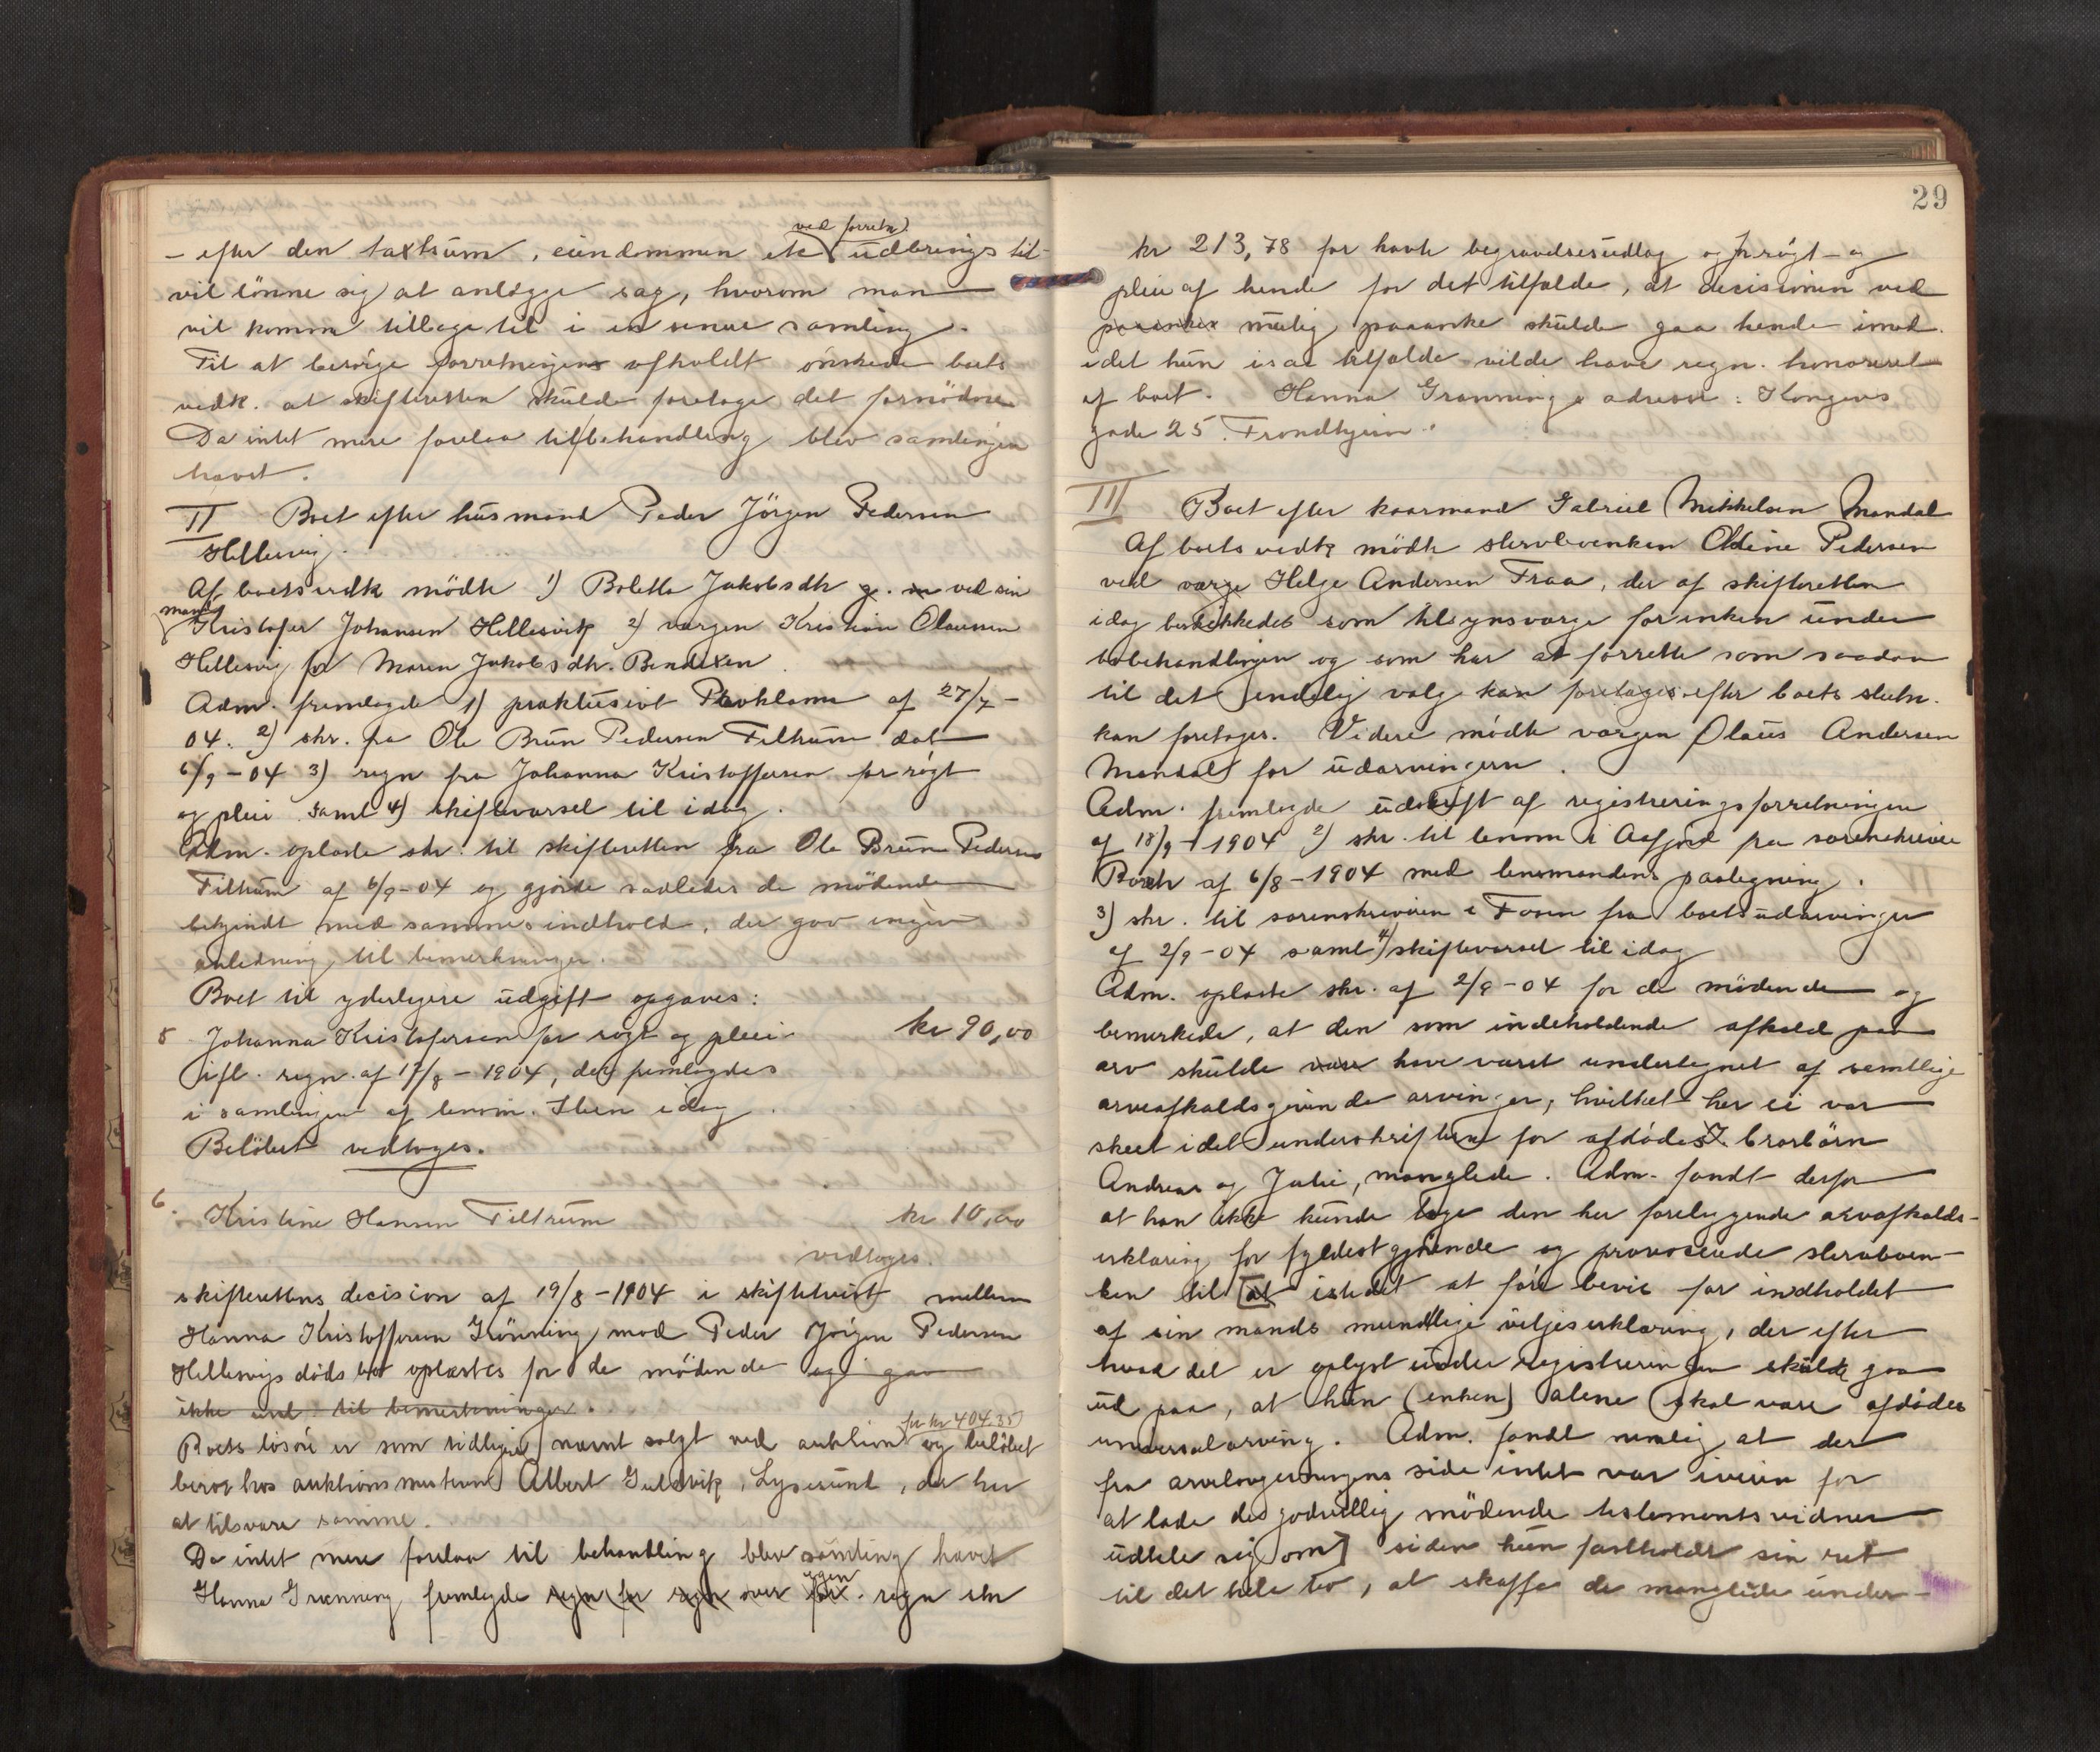 ved forretn.
– efter den taxtsum, eiendommen etc udbrings til
vil lønne sig at anlægge sag, hvorom man
vil komme tilbage til i en senere samling.
Til at besørge forretningens afholdt ønskede boets
vedk. at skifteretten skulde foretage det fornødne
Da intet mere forelaa til behandling blev samlingen
hævet.
II Boet efter husmand Peder Jörgen Pedersen
Hellesvig.
Af boets vedk mödte 1) Boletta Jakobsdtr g. m ved sin
mand
Kristofer Johansen Hellesvik 2) værgen Kristian Olaussen
Hellesvig for Maren Jakobsdtr. Bendixen.
Adm. fremlagde 1) præklusivt Proklama af 27/7 –
04. 2) skr. fra Ole Brun Pedersen Filtrum dat
6/9 – 04 3) regn fra Johanna Kristoffersen for røgt
og pleie samt 4) skiftevarsel til idag.
Adm. oplæste skr. til skifteretten fra Ole Brun Pedersen
Filtrum af 6/9 – 04 og gjorde saaledes de mødende
bekjendt med sammes indhold, der gav ingen
anledning til bemerkninger.
Boet til yderligere udgift opgaves:
5 Johanna Kristofersen for røgt og pleie kr 90,00
ifl. regn. af 17/8 – 1904, der fremlagdes
i samlingen af lensm. Iben idag.
Beløbet vedtoges.
6. Kristine Hansen Filtrum kr 10,00
vedtoges.
skifterettens decision af 19/8 – 1904 i skiftetvist mellem
Hanna Kristoffersen Grönning mod Peder Jörgen Pedersen
Hellesvigs dödsbo oplæstes for de mødende og gav
ikke anl. til bemerkninger.
for kr 404.35
Boets løsøre er som tidligere nævnt solgt ved auktion og beløbet
beror hos auktionsmesteren Albert Guldvik, Lysøsund, der har
at tilsvare samme.
Da intet mere forelaa til behandling blev samling hævet
igjen
Hanna Grønning fremlagde regn for regn over for. regn stor
29
kr 213,78 for havte begravelsesudlæg og for røgt – og
pleie af hende for det tilfælde, at decisionen ved
paaanken mulig paaanke skulde gaa hende imod.
idet hun isaa tilfælde vilde have regn. honoreret
af boet. Hanna Grønnings adresse: Kongens
gade 25. Trondhjem.
III Boet efter kaarmand Gabriel Mikkelsen Mandal
Af boets vedk mödte stervbo enken Oldine Pedersen
ved værge Helge Andersen Fraa, der af skifteretten
idag beskikkedes som tilsynsværge for enken under
bobehandlingen og som har at forrette som saadan
til det endelig valg kan foretages efter boets slutn.
kan foretages. Videre mødte værgen Olaus Andersen
Mandal for udarvingerne.
Adm. fremlagde udskrift af registreringsforretningen
af 18/9 – 1904 2) skr. til lensm i Aafjord fra sorenskriver
Bach af 6/8 – 1904 med lensmandens paategning.
3) skr. til sorenskriveren i Fosen fra boets udarvinger
af 2/9 – 04 samt 4) skiftevarsel til idag
Adm. oplæste skr. af 2/9 – 04 for de mødende og
bemerkede, at den som indeholdende afkald paa
arv skulde være have været undertegnet af samtlige
arveafkaldsgivende arvinger, hvilket her ei var
skeet idet underskriften for afdødes brorbörn
Andreas og Julie, manglede. Adm. fandt derfor
at han ikke kunde tage den her foreliggende arvafkalds-
erklæring for fyldestgjørende og provoserede stervboen-
ken til at istedet at føre bevis for indholdet
af sin mands mundtlige viljeserklæring, der efter
hvad det er oplyst under registreringen skulde gaa
ud paa, at hun (enken) alene skal være afdødes
universalarving. Adm. fandt nemlig at der
fra arvelovgivningens side intet var iveien for
at lade de godvillig mødende testamentsvidner
udtale sig om] siden hun fastholdt sin ret
til det hele bo, at skaffe de manglede under-